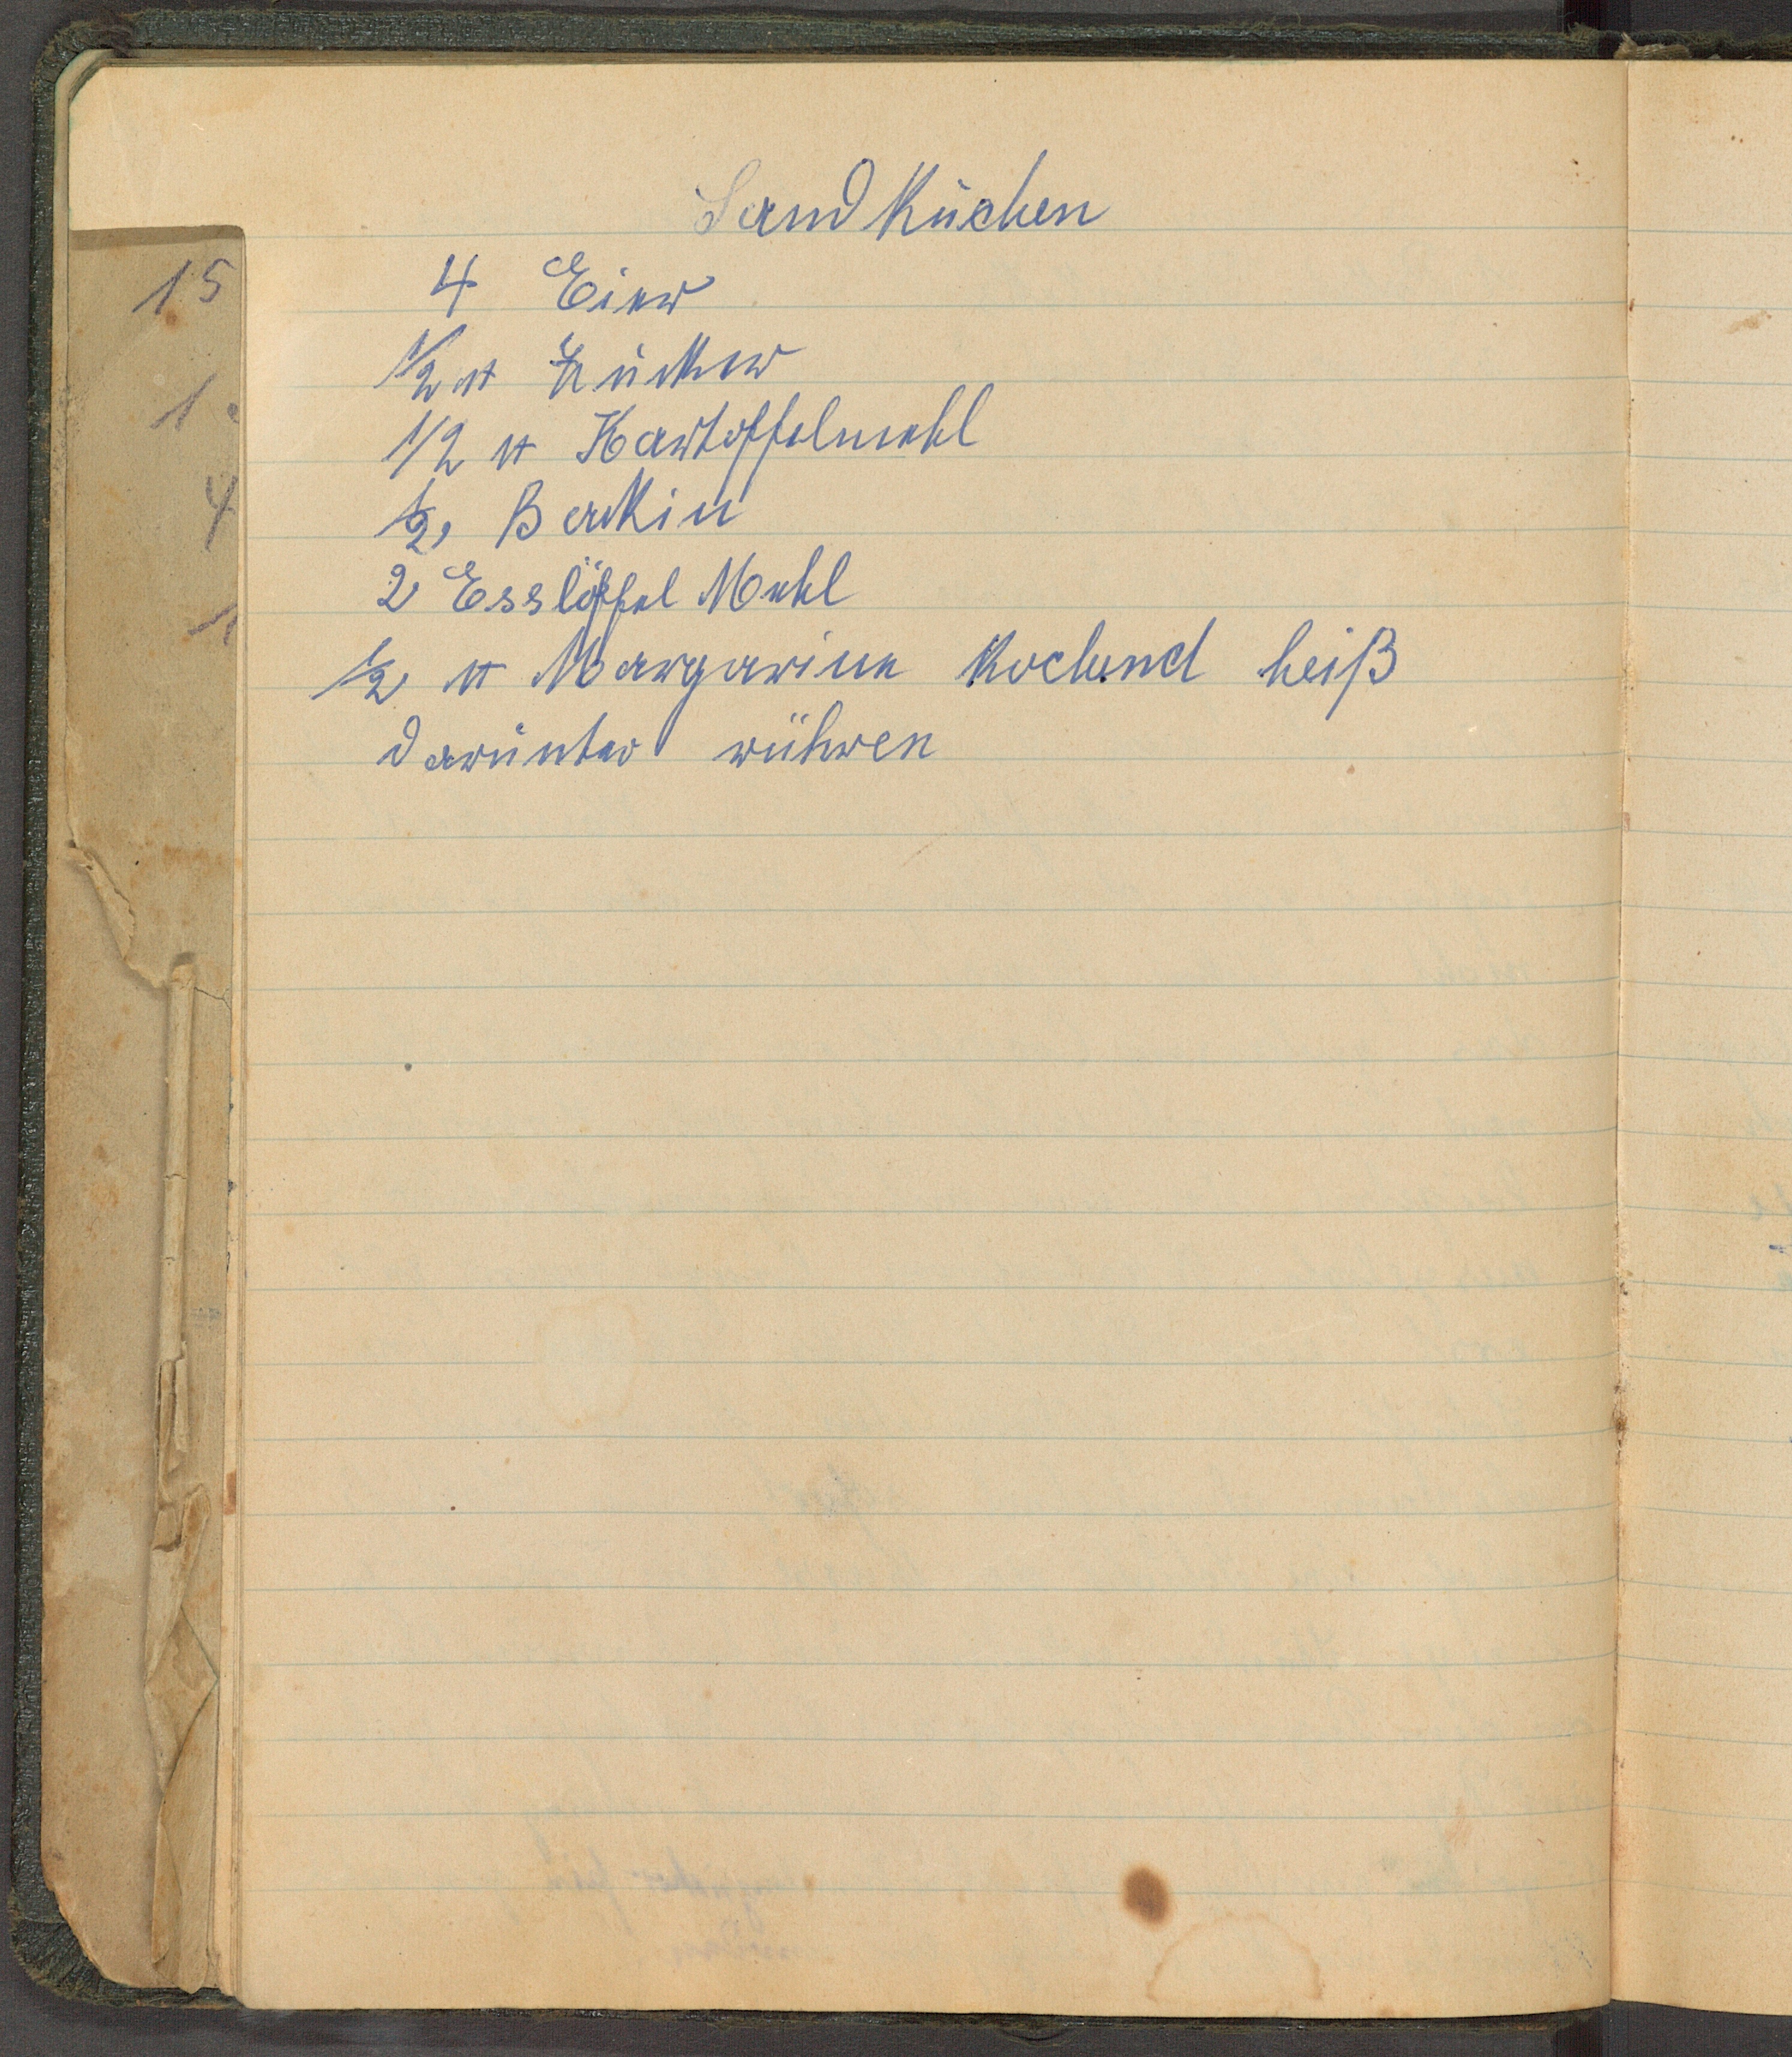 Sandkuchen
4 Eier
1/2 ℔ Zucker
1/2 ℔ Kartoffelmehl
1/2 Backin
2 Esslöffel Mehl
1/2 ℔ Margarine kochend heiß
darunter rühren
15
1
4
1